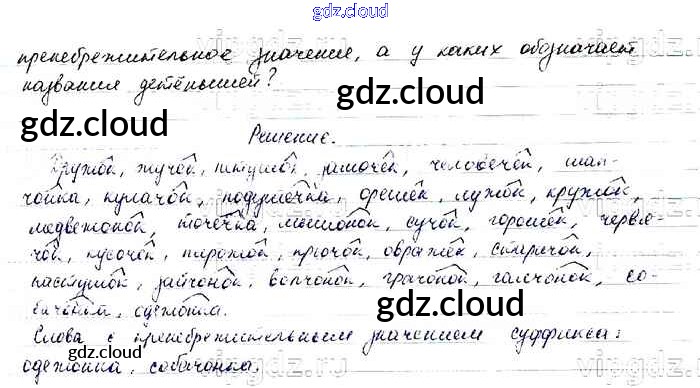 gdz.cloud
пренебрежительное значение, а у каких обозначает
названия детёнышей?
gdz.cloud
gdz.cloud
Решение.
Кружок, жучок, петушок, замочек, человечек, шап-
чонка, кулачок, подушечка, орешек, лужок, кружок,
медвежонок, точечка, мышонок, сучок, горошек, червя-
чок, кусочек, пирожок, крючок, овражек, старичок,
пастушок, зайчонок, волчонок, грачонок, галчонок, со-
gdz.cloud
бачонка, одежонка.
Слова с пренебрежительным значением суффикса:
gdz.cloud
одежонка, собачонка.